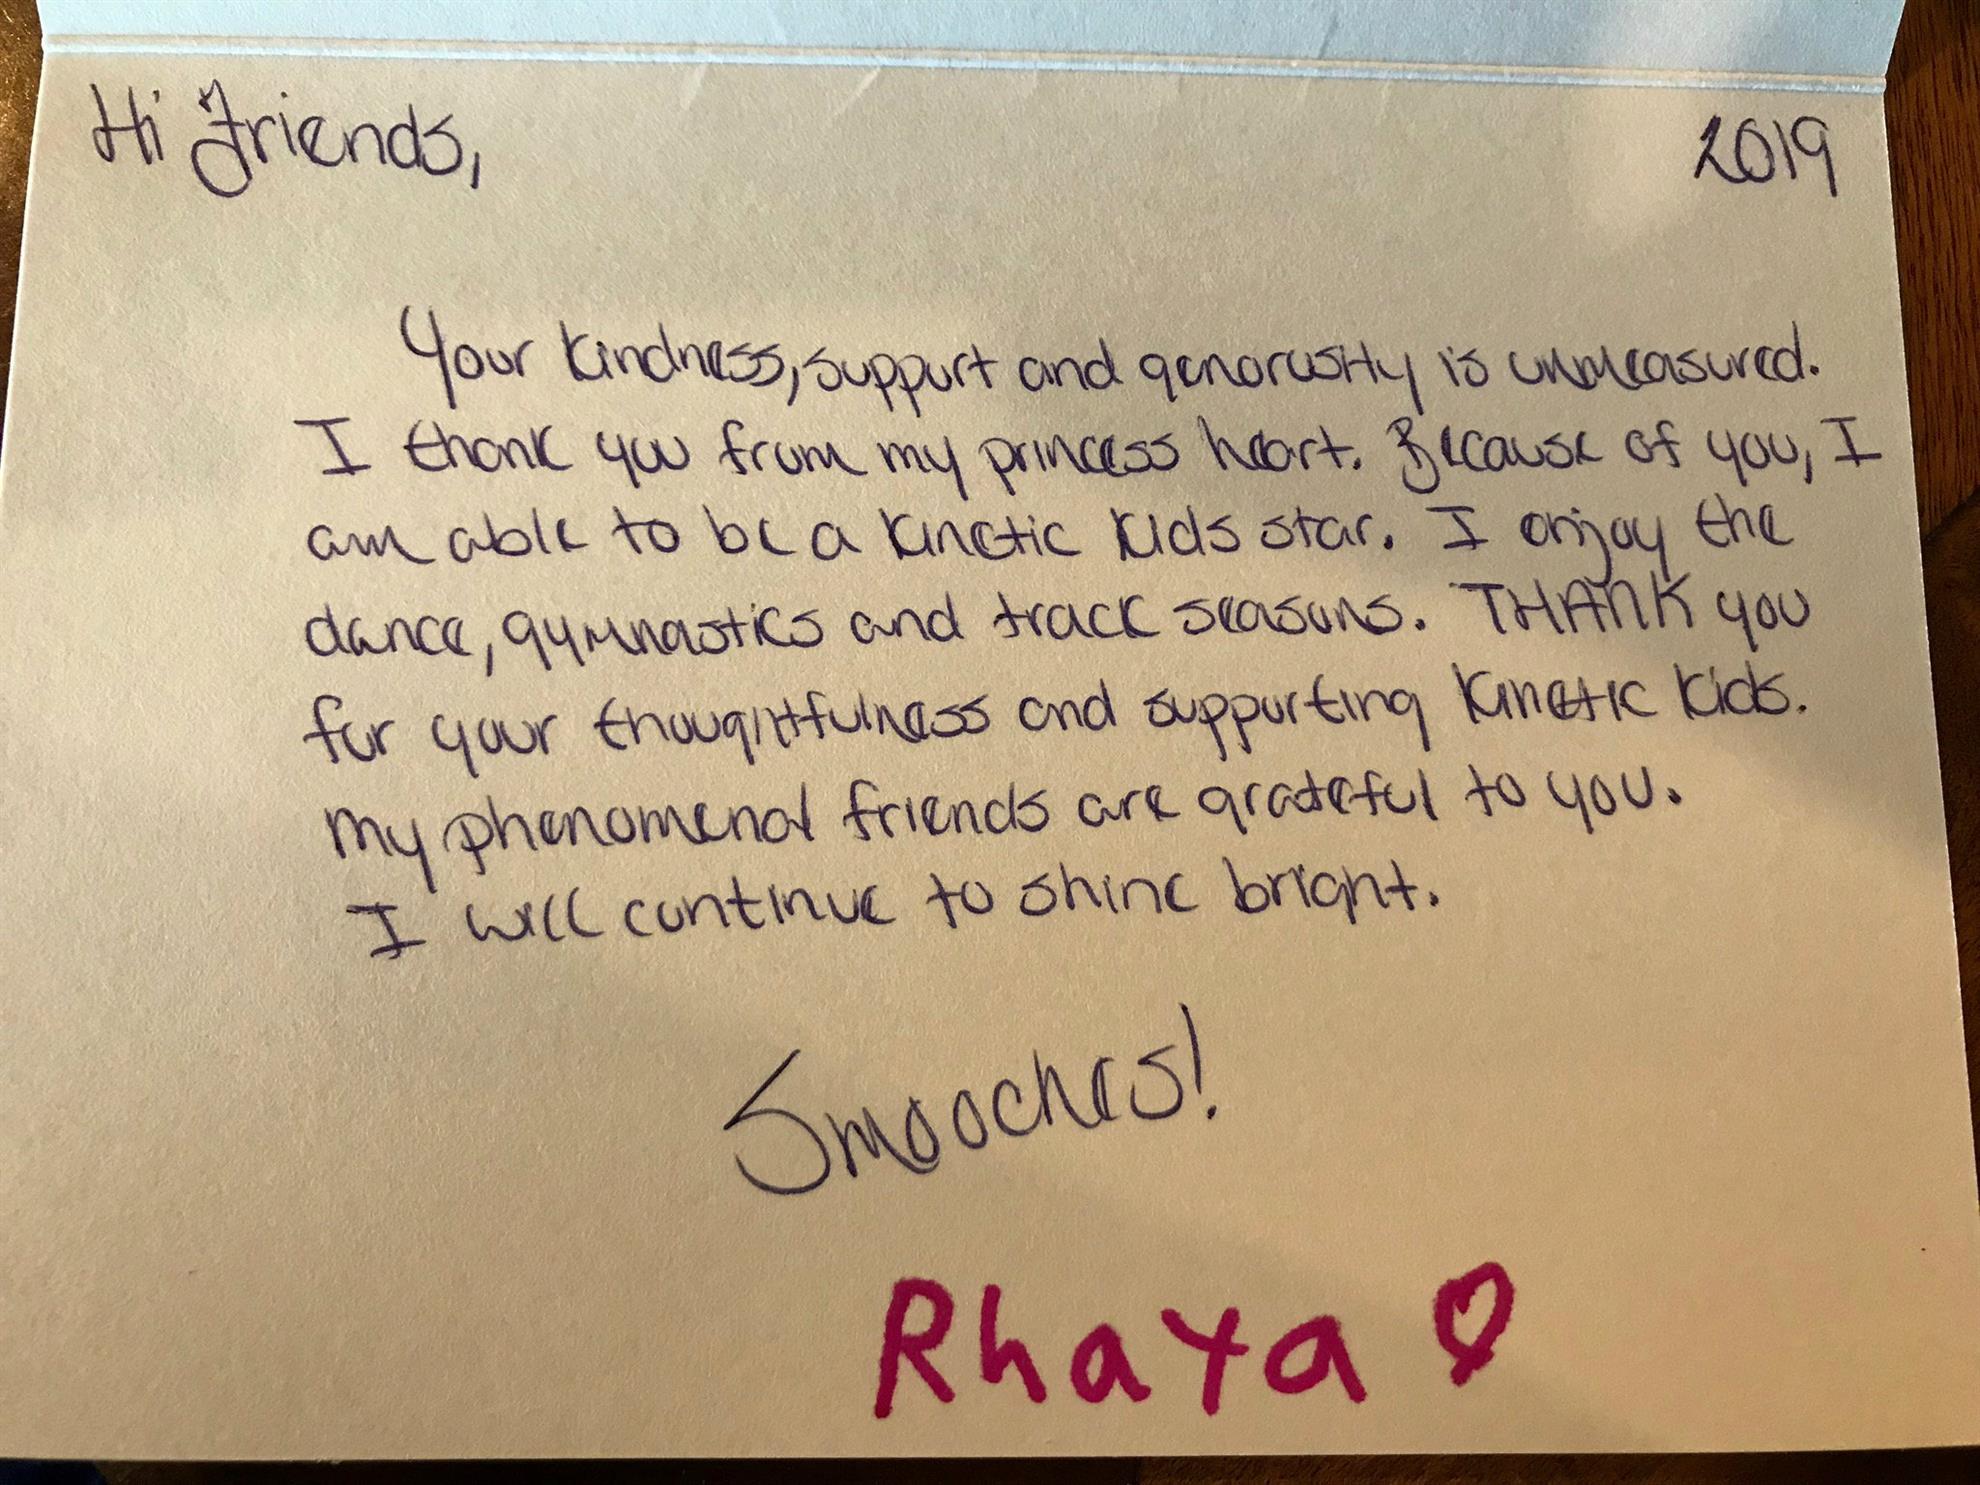 Hi Friends,
2019
Your kindness, support and generosity is unmeasured.
I thank you from my princess heart. Because of you, I
am able to be a Kinetic Kids star. I enjoy the
dance, gymnastics and track seasons. THANK you
for your thoughtfulness and supporting Kinetic Kids.
My phenomenal friends are grateful to you.
I will continue to shine bright.
Smooches!
Rhaya